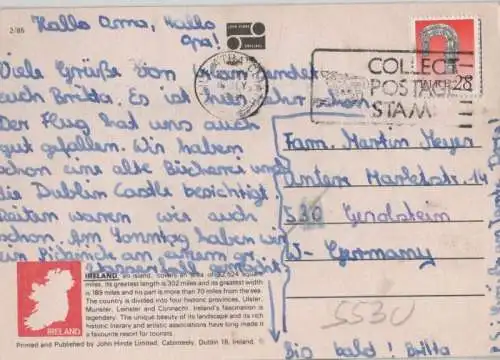 2/86
Hallo Oma, Hallo
Opa!
Viele Grüße von
auch Britta. Es
Der Flug hat uns auch
gut gefallen. Wir haben
schon eine alte Bücherei und
die Dublin Castle besichtigt.
Reiten waren wir auch
schon. Am Sonntag haben wir
ein Picknick an einem
COLLECT
POSTAGE
STAM
28
Fam. Martin Meyer
Unter Marktstr. 14
530 Gerolstein
W-Germany
5530
Bis bald! Britta
IRELAND, an island, covers an area of 32,524 square
miles. Its greatest length is 302 miles and its greatest width
is 189 miles and no part is more than 70 miles from the sea.
The country is divided into four historic provinces, Ulster,
Munster, Leinster and Connacht. Ireland's fascination is
legendary. The unique beauty of its landscape and its rich
historic literary and artistic associations have long made it
a favourite resort for tourists.
IRELAND
Printed and Published by John Hinde Limited, Cabinteely, Dublin 18, Ireland.